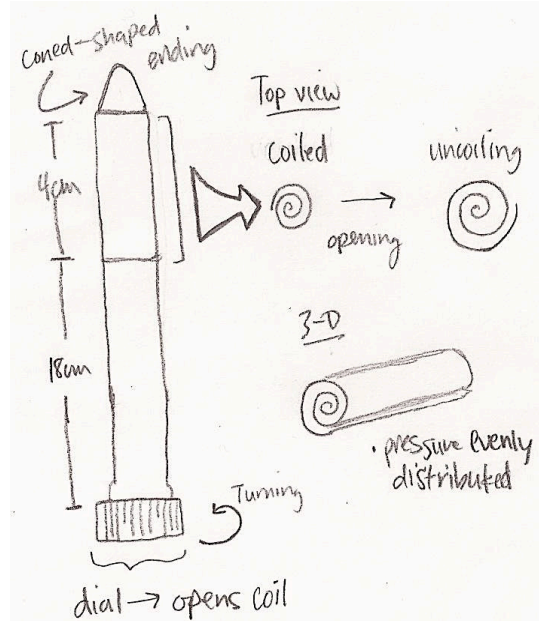 coned-shaped
ending
4cm
18cm
Top view
coiled
uncoiling
opening
3-D
• pressure evenly
distributed
Turning
dial → opens coil